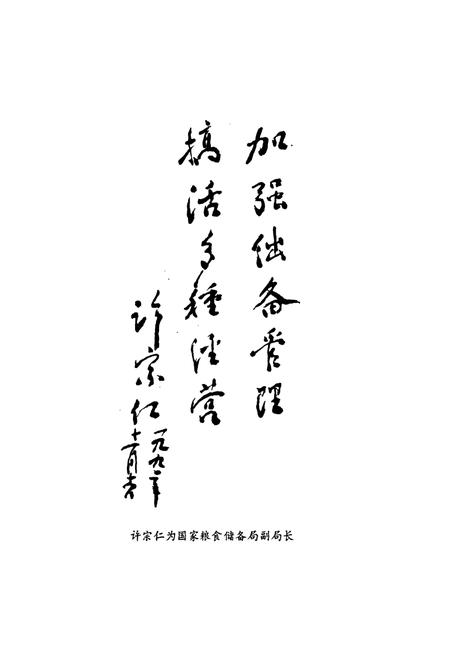 加强储备管理
搞活多種经营
许宗仁
一九九二年
十一月
许宗仁为国家粮食储备局副局长